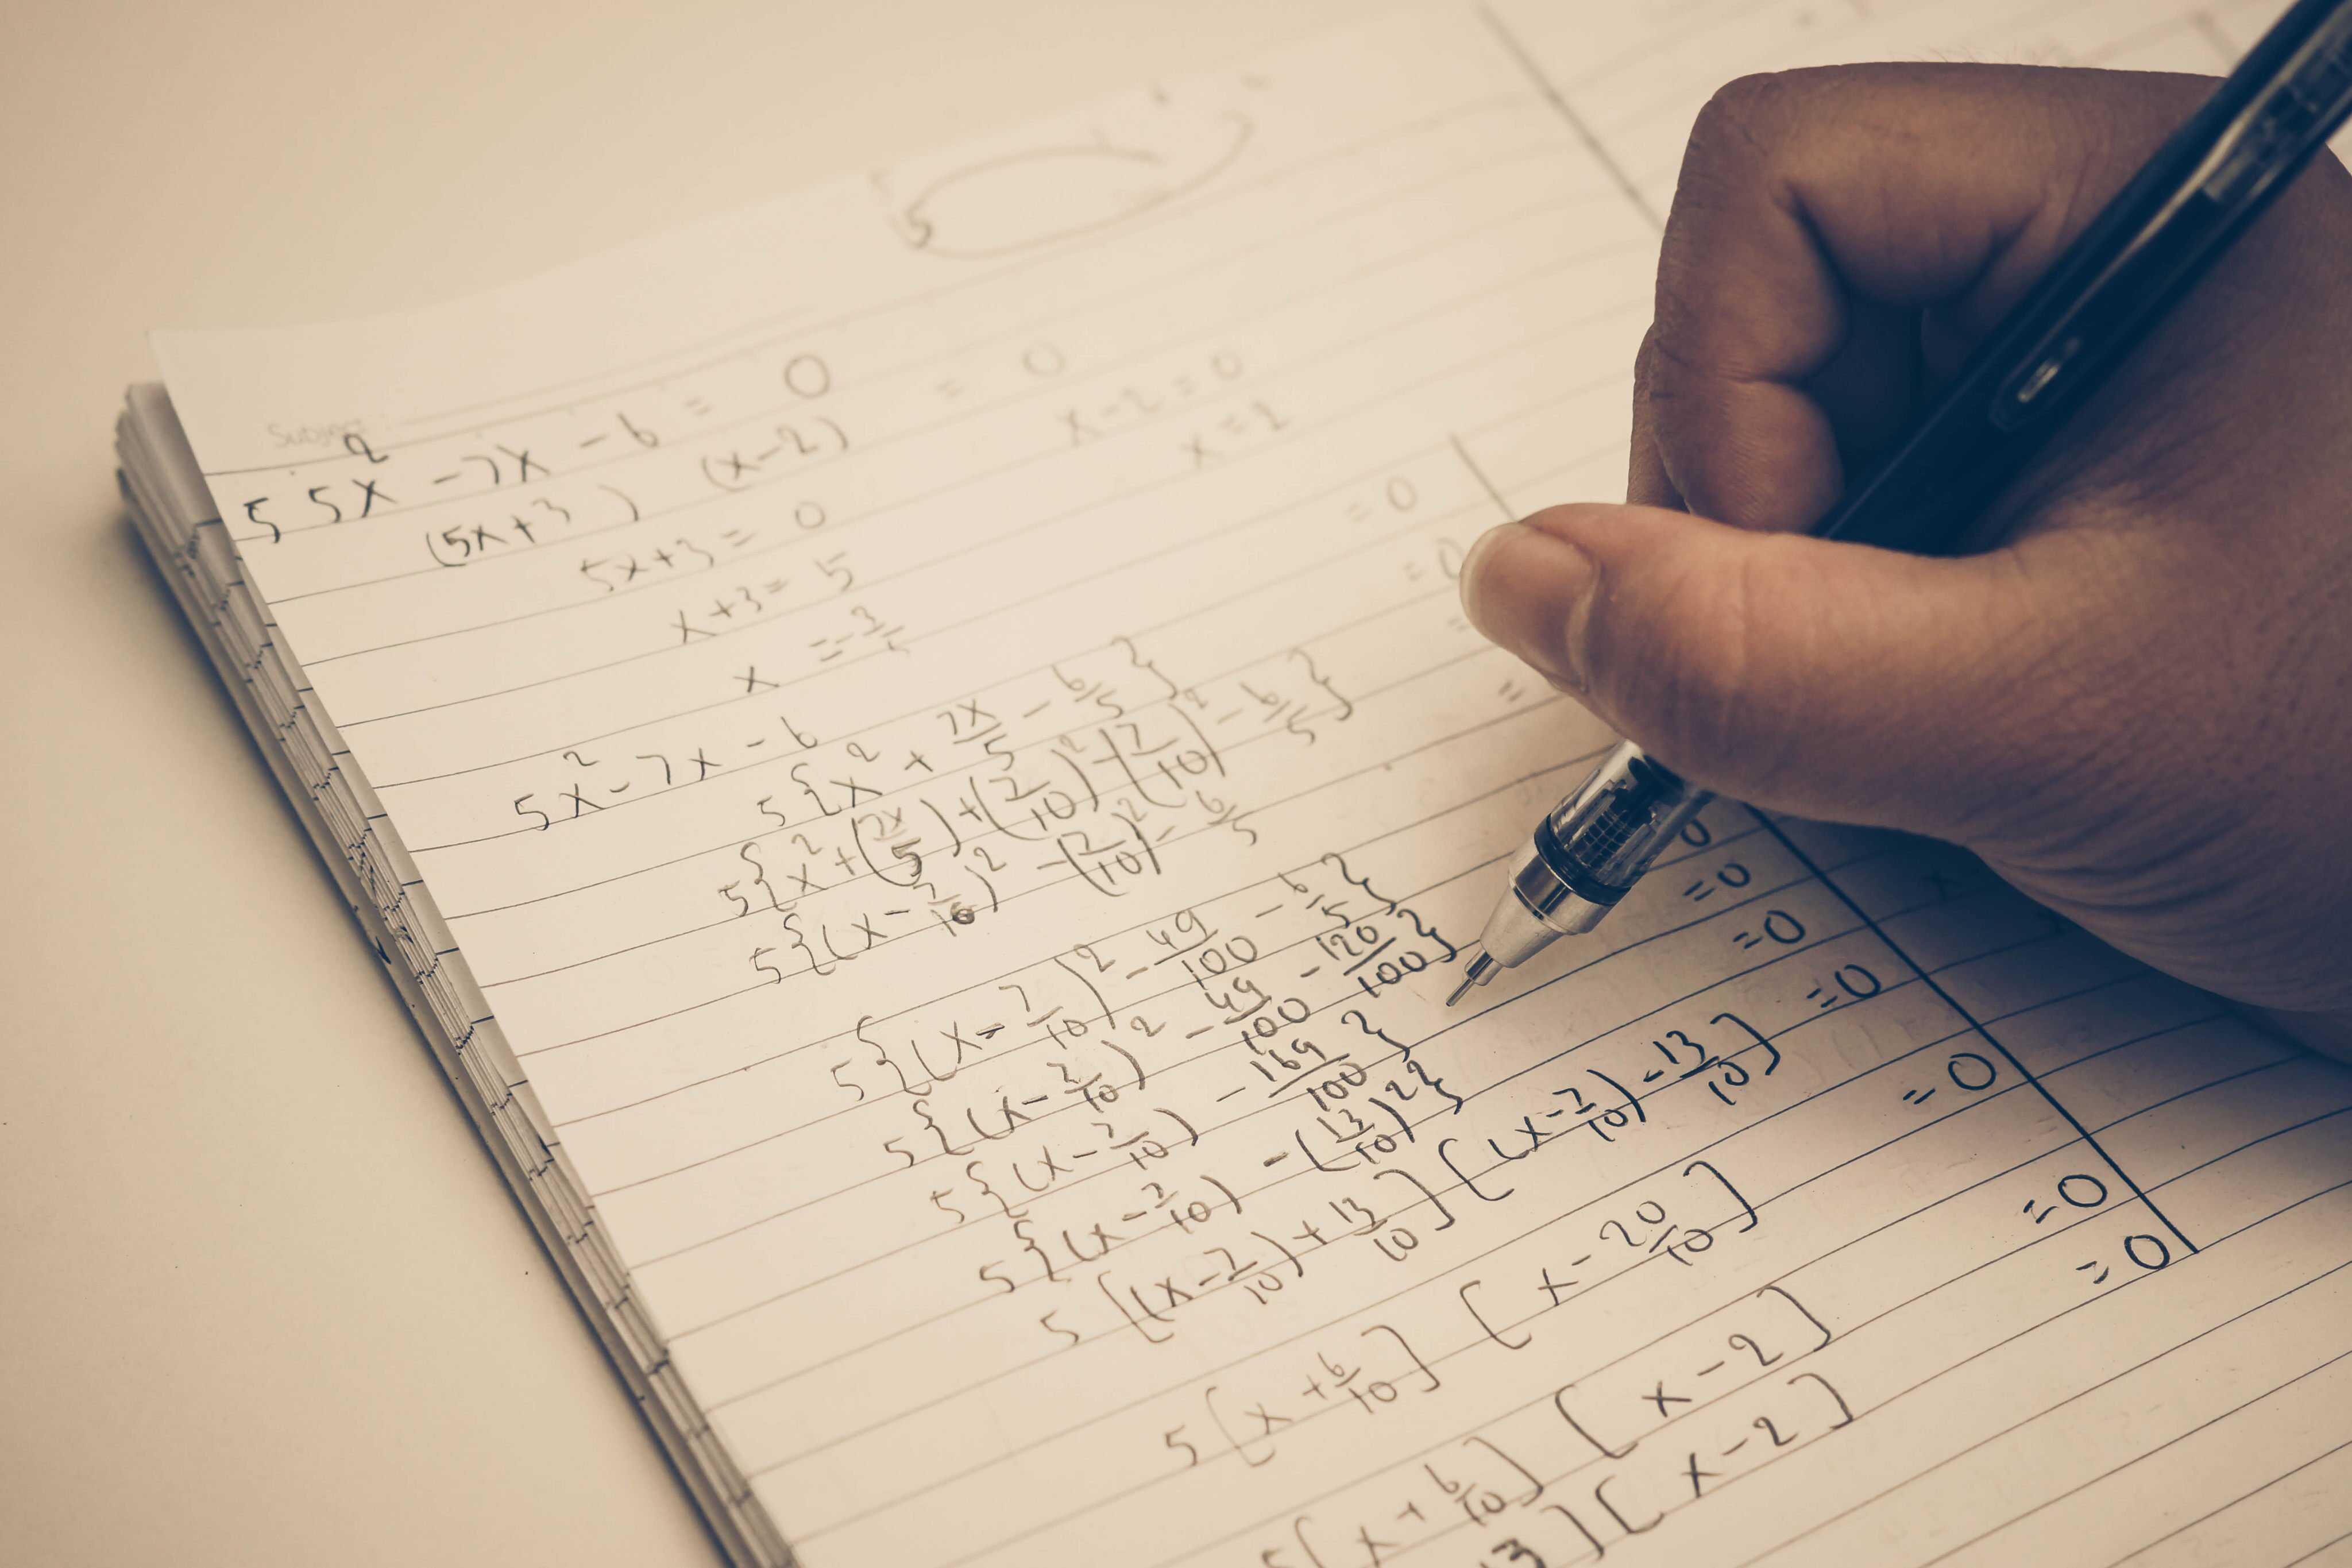 5
Subject
5 5x² - 7x - 6 = 0
(5x+3) (x-2) = 0
5x+3 = 0 x-2 = 0
x+3 = 5 x = 2
x = -3/5
5x² - 7x - 6 = 0
5{x² + 7x/5 - 6/5} = 0
5{x² + (7x/5) + (7/10)² - (7/10)² - 6/5} =
5{(x - 7/10)² - (7/10)² - 6/5 =
5{(x - 7/10)² - 49/100 - 6/5} = 0
5{(x - 7/10)² - 49/100 - 120/100} = 0
5{(x - 7/10) - 169/100} = 0
5{(x - 7/10) - (13/10)²} = 0
5[(x - 7/10) + 13/10] [(x - 7/10) - 13/10] = 0
5[x + 6/10] [x - 20/10] = 0
5[x + 6/10] [x - 2] = 0
3] [x - 2] = 0